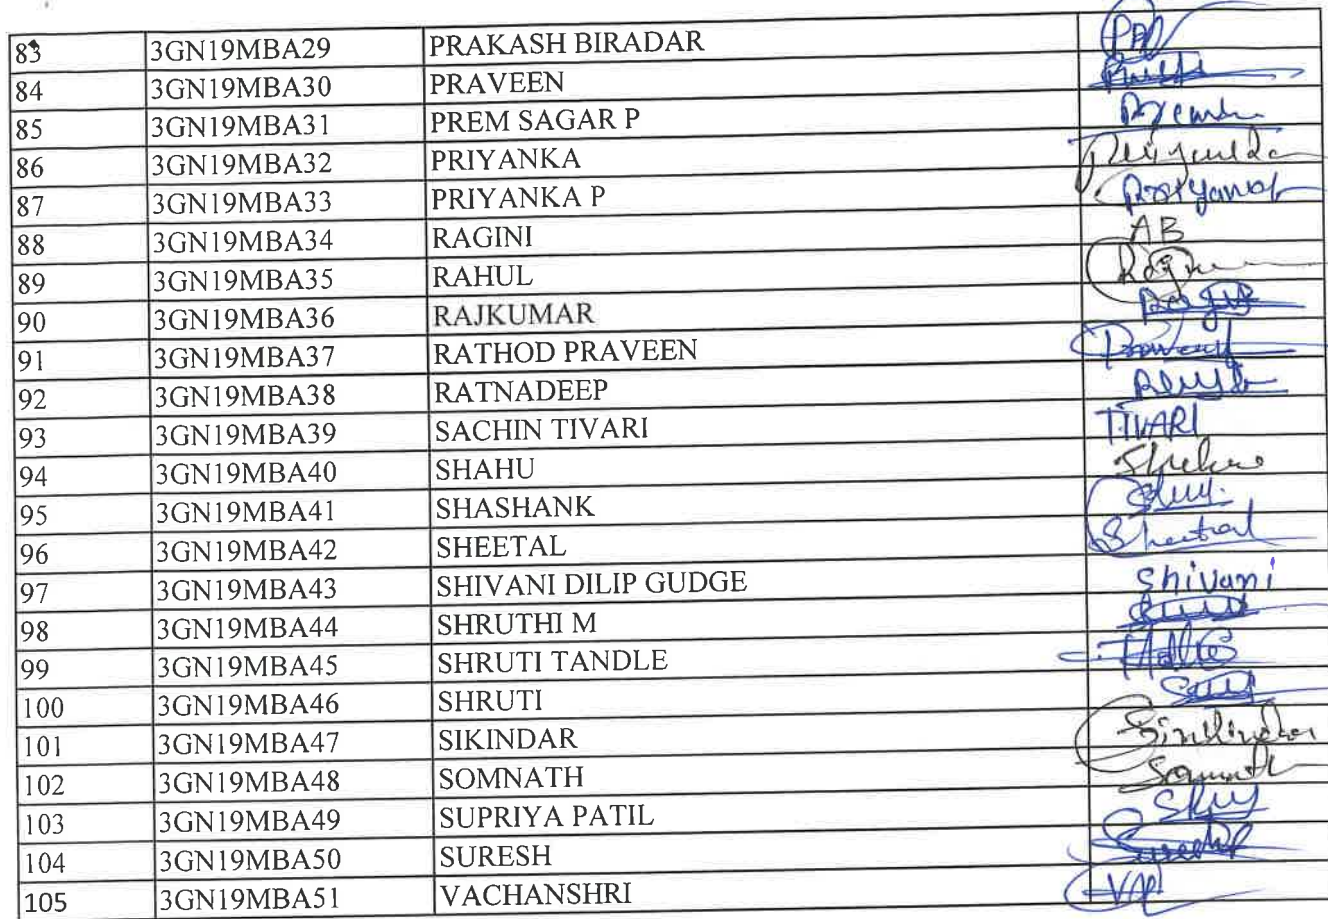 83 3GN19MBA29 PRAKASH BIRADAR
84 3GN19MBA30 PRAVEEN
85 3GN19MBA31 PREM SAGAR P
86 3GN19MBA32 PRIYANKA
87 3GN19MBA33 PRIYANKA P
88 3GN19MBA34 RAGINI AB
89 3GN19MBA35 RAHUL
90 3GN19MBA36 RAJKUMAR
91 3GN19MBA37 RATHOD PRAVEEN
92 3GN19MBA38 RATNADEEP
93 3GN19MBA39 SACHIN TIVARI TIVARI
94 3GN19MBA40 SHAHU
95 3GN19MBA41 SHASHANK
96 3GN19MBA42 SHEETAL Sheetal
97 3GN19MBA43 SHIVANI DILIP GUDGE Shivani
98 3GN19MBA44 SHRUTHI M
99 3GN19MBA45 SHRUTI TANDLE
100 3GN19MBA46 SHRUTI
101 3GN19MBA47 SIKINDAR
102 3GN19MBA48 SOMNATH
103 3GN19MBA49 SUPRIYA PATIL
104 3GN19MBA50 SURESH
105 3GN19MBA51 VACHANSHRI